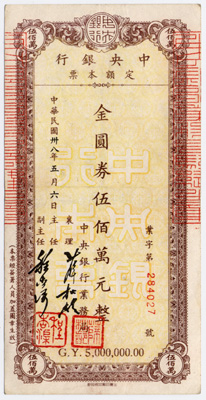 中央銀行
伍佰萬
伍佰萬
中央銀行
定額本票
金圓券伍佰萬元整
中華民國卅八年五月六日
業字第284027號
中央銀行業務局
襄理
主任
副主任
G.Y. 5,000,000.00
伍佰萬
伍佰萬